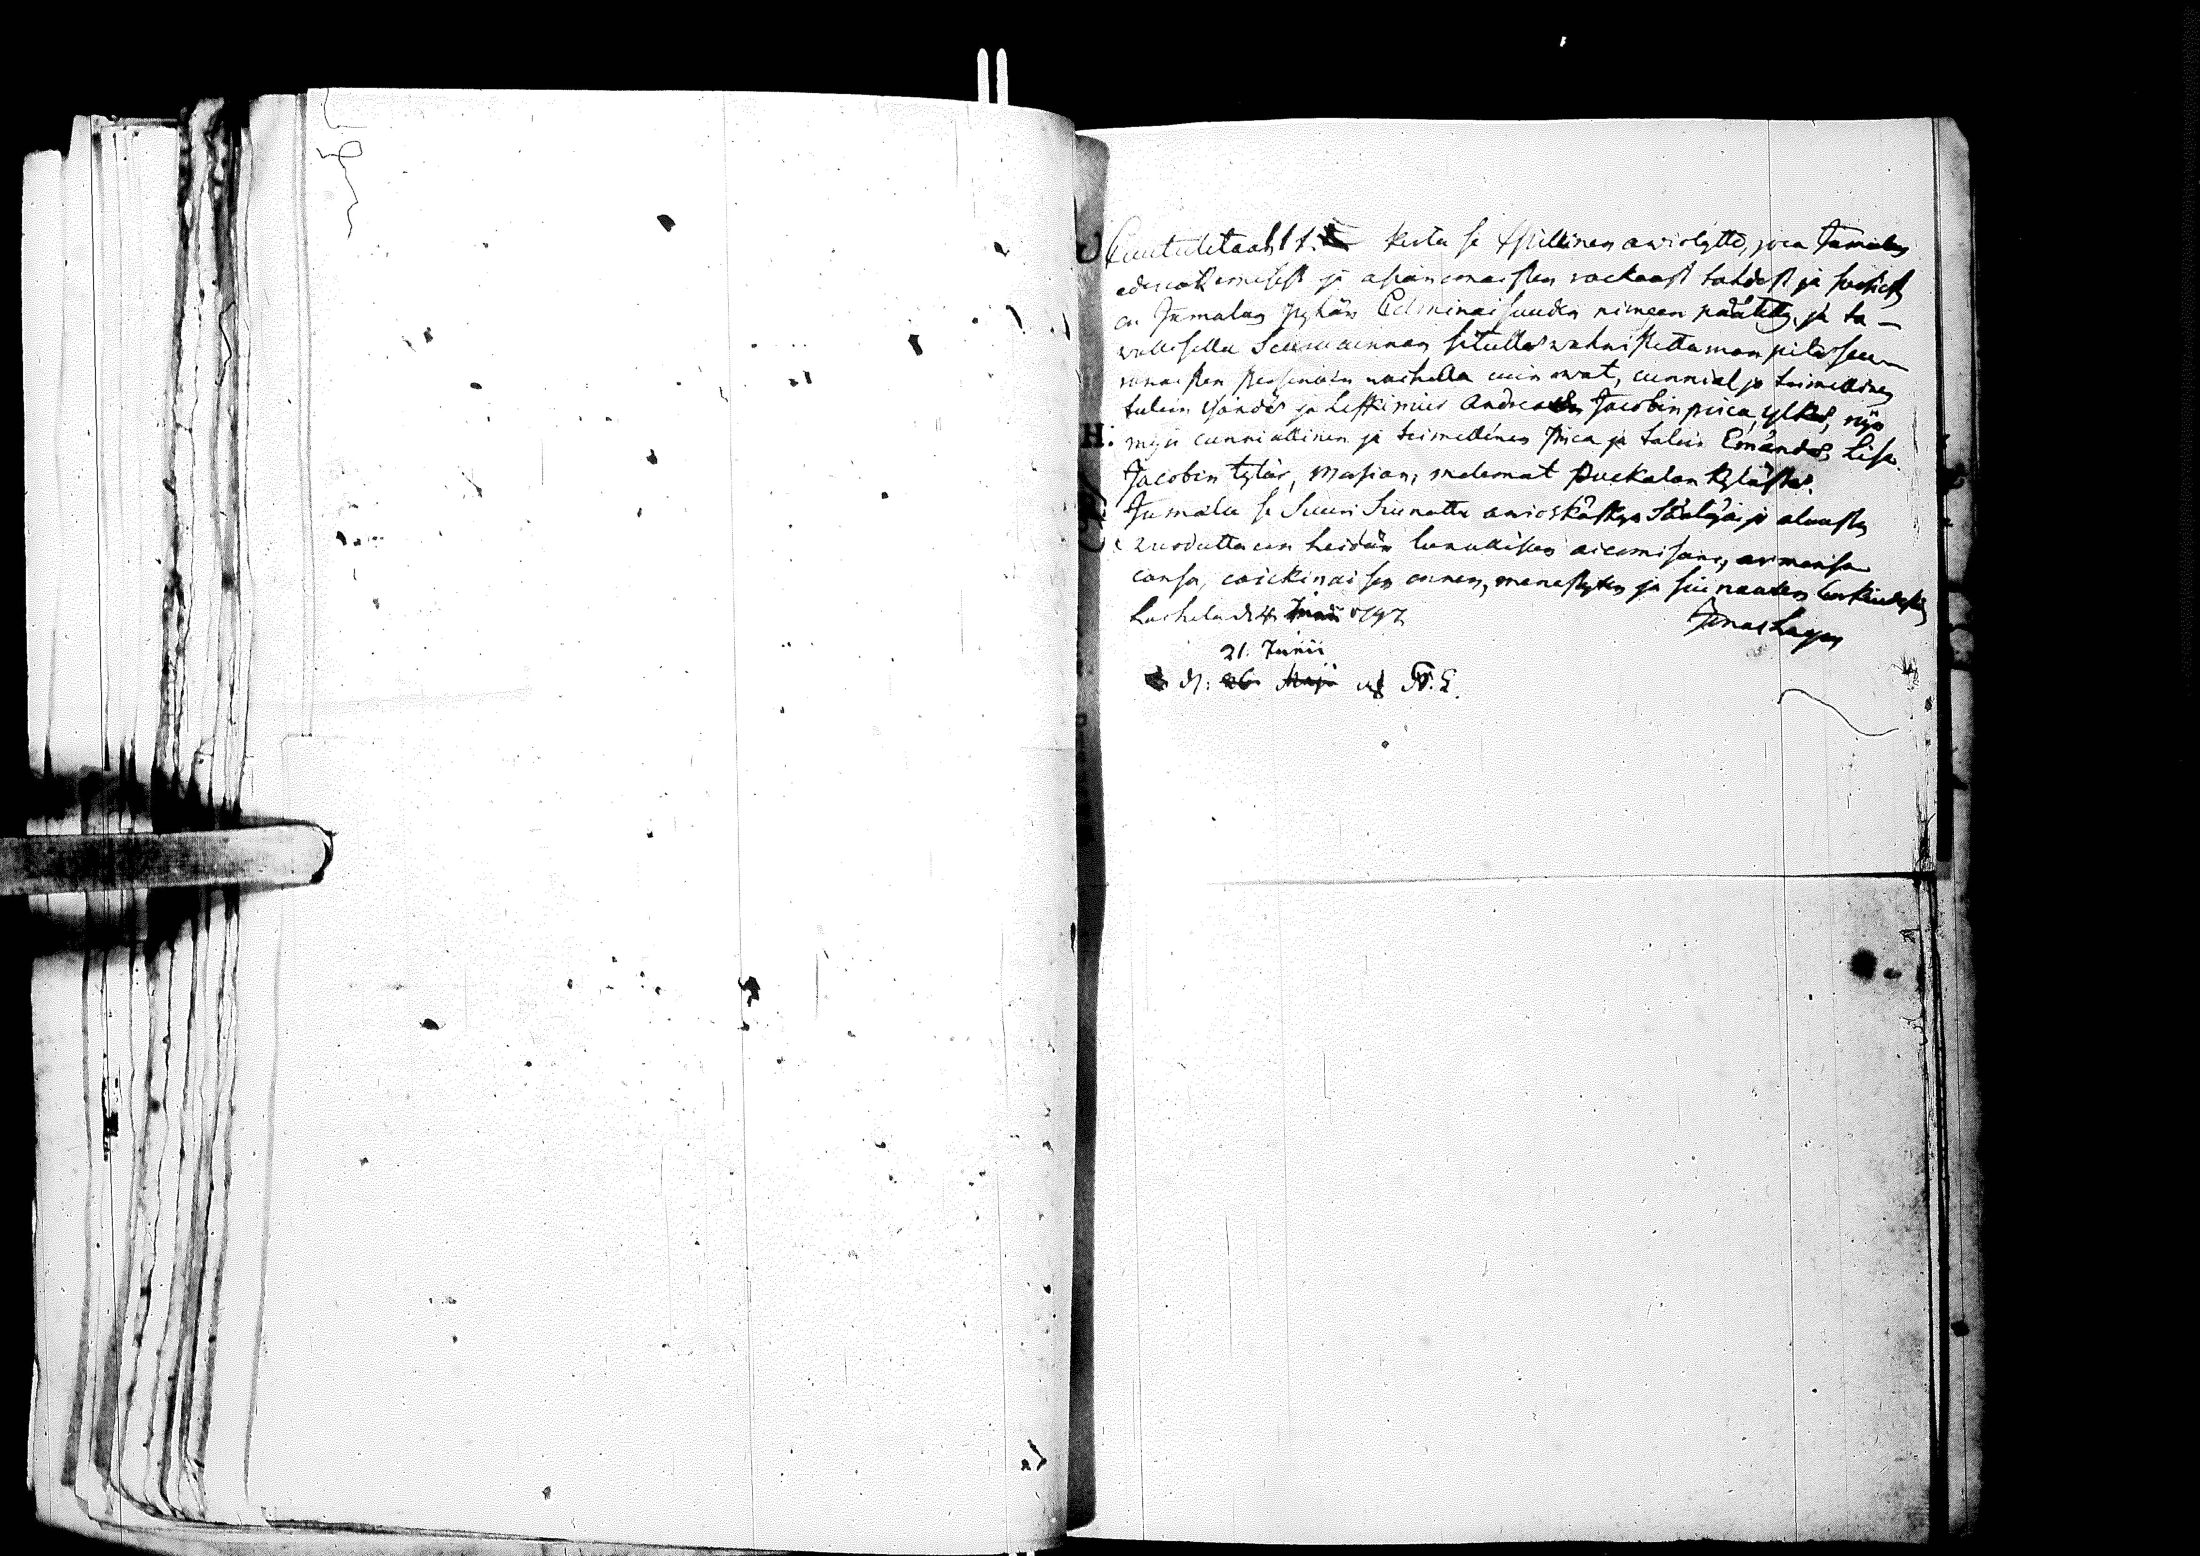 Cuulutetaan 1. kerta se Christillinen awiokytto, joca Jumalan
edescatzemisest ja asianomaisten rackaast tahdost ja suosiost
on Jumalan pyhän Colminaisuuden nimeen päätetty, ja ta-
wallisella Seuracunnan situlla wahwistettaman pitä seu-
rawaisten Personain wäihella cuin owat, cunnial. ja toimellinen
talon Isändä ja Leskimies Andreas Jacobin poica, ylkä, nijn
myös cunniallinen ja toimellinen Pijca ja talon Emändä Lisa
Jacobin tytär, Morsian, molemat Puckalan Kyläst.
Jumala se Suuri Siunattu awioskäskyn Säätäjä ja alcusta
wuodattacon heidän luwallisen aicomisens, armonsa
cansa, caickinaisen onnen, menestyxen ja siunauxen
Lochela d. 4 Junii 1797 Jonas Lagus
21. Junii
d: 26 Maji af N. L.